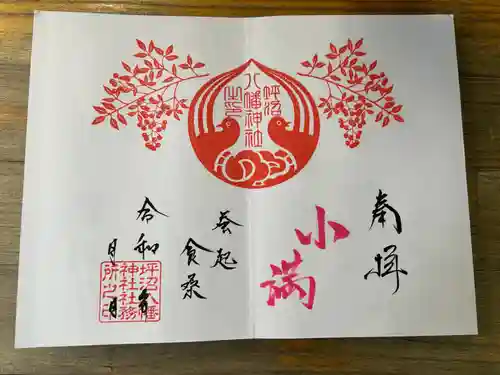 坪沼
八幡神社
之印
奉拝
小満
蚕起
食桑
令和 年
月 日
坪沼八幡
神社社務
所之印